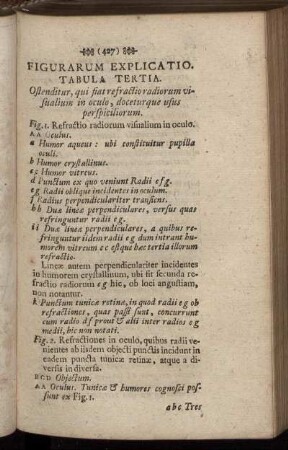 (427)
FIGURARUM EXPLICATIO.
TABULA TERTIA.
Ostenditur, qui fiat refractio radiorum vi-
sualium in oculo, doceturque usus
perspiciliorum.
Fig. 1. Refractio radiorum visualium in oculo.
AA Oculus.
a Humor aqueus: ubi constituitur pupilla
oculi.
b Humor crystallinus.
cc Humor vitreus.
d Punctum ex quo veniunt Radii efg.
eg Radii oblique incidentes in oculum.
f Radius perpendiculariter transiens.
hh Duæ lineæ perpendiculares, versus quas
refringuntur radii eg.
ii Duæ lineæ perpendiculares, a quibus re-
fringuntur iidem radii eg dum intrant hu-
morem vitreum cc estque hæc tertia illorum
refractio.
Lineæ autem perpendiculariter incidentes
in humorem crystallinum, ubi fit secunda re-
fractio radiorum eg hic, ob loci angustiam,
non notantur.
k Punctum tunicæ retinæ, in quod radii eg ob
refractiones, quas passi sunt, concurrunt
cum radio df prout & alii inter radios eg
medii, hic non notati.
Fig. 2. Refractiones in oculo, quibus radii ve-
nientes ab iisdem objecti punctis incidunt in
eadem puncta tunicæ retinæ, atque a di-
versis in diversa.
BCD Objectum.
AA Oculus. Tunicæ & humores cognosci pos-
sunt ex Fig. 1.
abc Tres